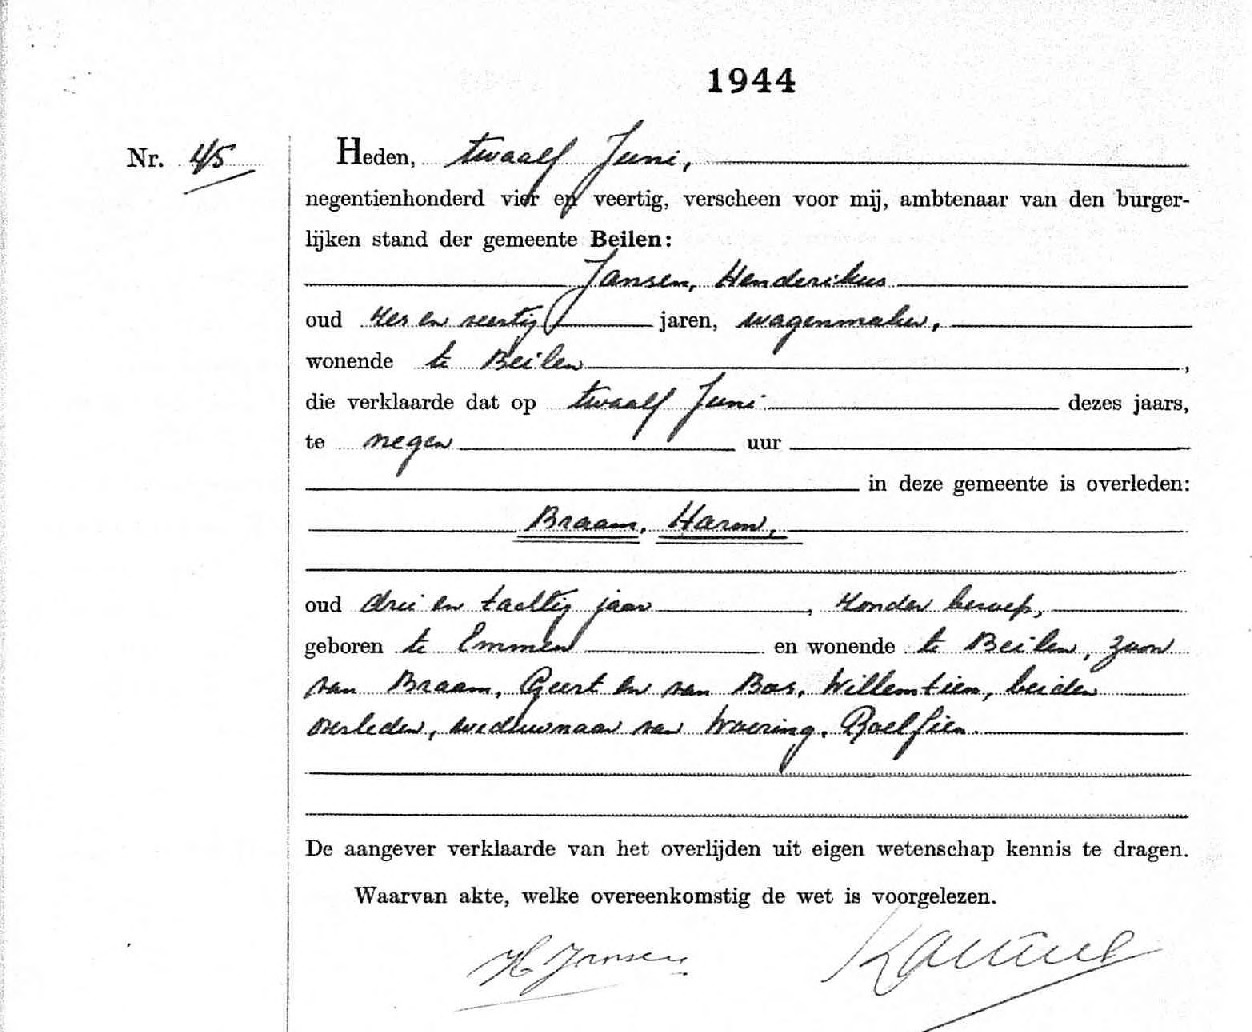 1944
Nr. 45
Heden, twaalf Juni,
negentienhonderd vier en veertig, verscheen voor mij, ambtenaar van den burger-
lijken stand der gemeente Beilen:
Jansen, Henderikus
oud zes en veertig jaren, wagenmaker,
wonende te Beilen,
die verklaarde dat op twaalf Juni dezes jaars,
te negen uur
in deze gemeente is overleden:
Braam, Harm,
oud drie en tachtig jaar, zonder beroep,
geboren te Emmen en wonende te Beilen, zoon
van Braam, Geert en van Bos, Willemtien, beiden
overleden, weduwnaar van Woering, Roelfien.
De aangever verklaarde van het overlijden uit eigen wetenschap kennis te dragen.
Waarvan akte, welke overeenkomstig de wet is voorgelezen.
H. Jansen